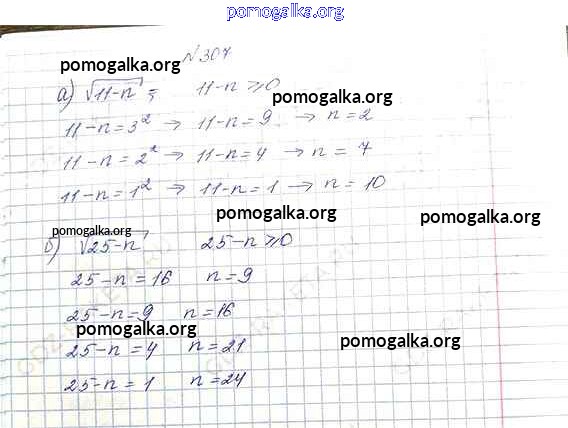 pomogalka.org
№307
pomogalka.org
а) √11-n ; 11-n ≥ 0
pomogalka.org
11-n=3² → 11-n=9 → n=2
11-n=2² → 11-n=4 → n=7
11-n=1² → 11-n=1 → n=10
pomogalka.org
pomogalka.org
pomogalka.org
б) √25-n 25-n ≥ 0
25-n=16 n=9
25-n=9 n=16
pomogalka.org
pomogalka.org
25-n=4 n=21
25-n=1 n=24